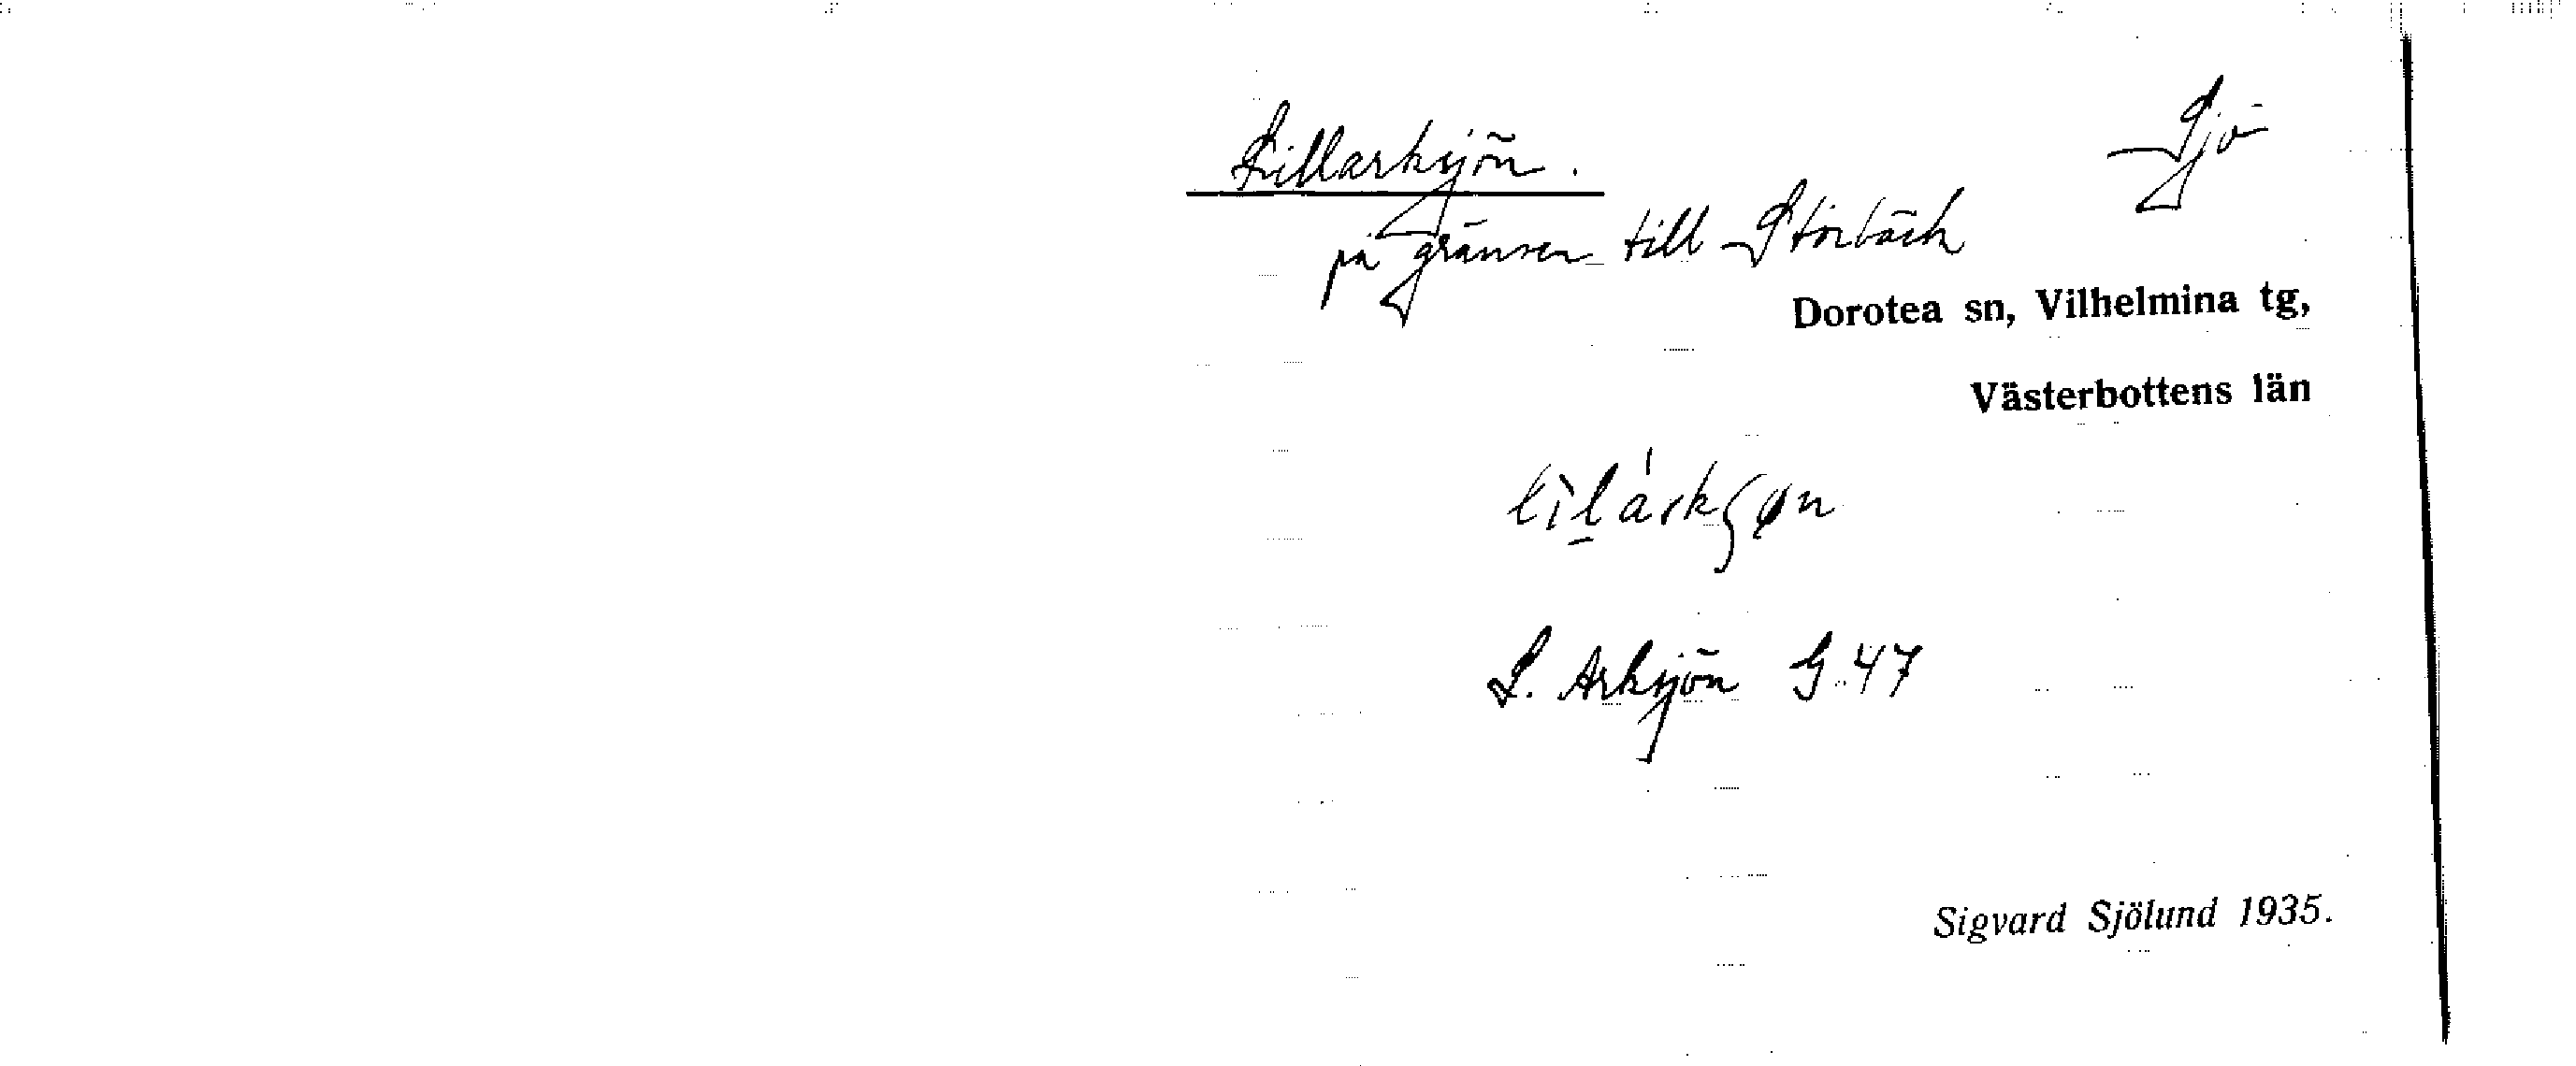 Lillarksjön. Sjö
på gränsen till Storbäck
Dorotea sn, Vilhelmina tg,
Västerbottens län
L. Arksjön G. 47
Sigvard Sjölund 1935.